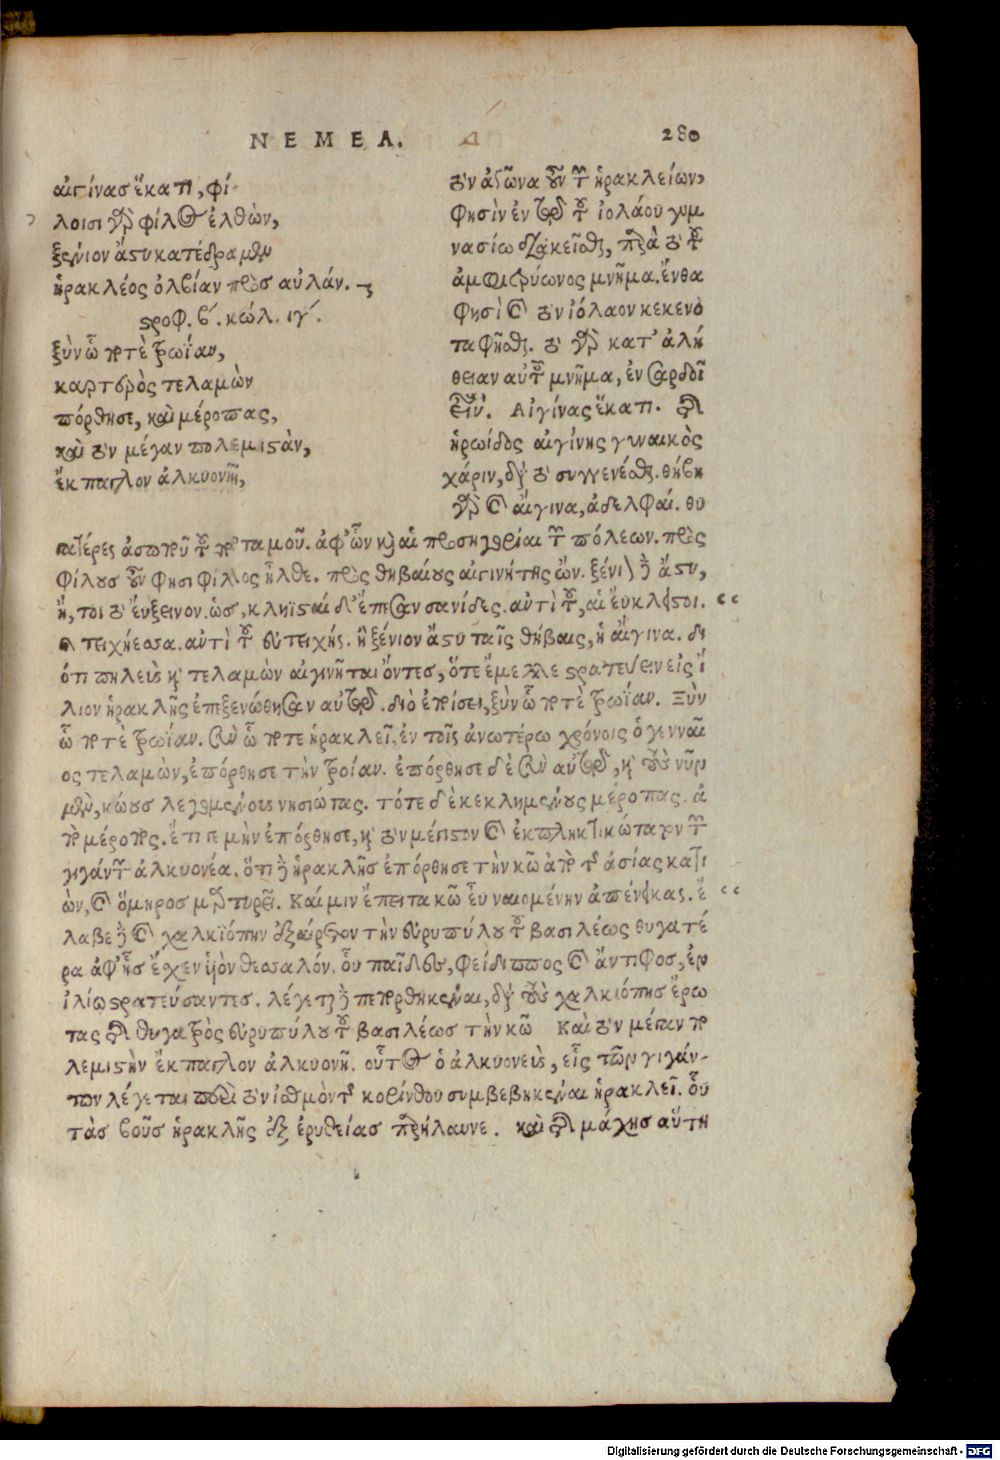 ΝΕΜΕΑ. Δ 280
αἰγίνας ἕκατι, φί-
λοισι γὰρ φίλος ἐλθὼν,
ξένιον ἄστυ κατέδραμεν
ἡρακλέος ὀλβίαν πρὸς αὐλάν.
στροφ. β. κώλ. ιγ.
ξὺν ᾧ ποτὲ τροΐαν,
καρτερὸς τελαμὼν
πόρθησε, καὶ μέροπας,
καὶ τὸν μέγαν πολεμιστὰν,
ἔκπαγλον ἀλκυονῆ,
τὸν ἀγῶνα οὖν τῶν ἡρακλείων,
φησὶν ἐν τῷ τοῦ ἰολάου γυμ
νασίῳ διακεῖσθαι, παρὰ τὸ τοῦ
ἀμφιτρύωνος μνῆμα. ἔνθα
φησὶ καὶ τὸν ἰόλαον κεκενο
ταφῆσθαι. τὸ γὰρ κατ' ἀλή
θειαν αὐτοῦ μνῆμα, ἐν σαρδοῖ
ἐστίν. Αἰγίνας ἕκατι. τῆς
ἡρωίδος αἰγίνης γυναικὸς
χάριν, διὰ τὸ συγγενέσθαι. θήβη
γὰρ καὶ αἴγινα, ἀδελφαί. θυ
γατέρες ἀσωποῦ τοῦ ποταμοῦ. ἀφ' ὧν καὶ αἱ προσηγορίαι τῶν πόλεων. πρὸς
φίλους οὖν φησι φίλος ἦλθε. πρὸς θηβαίους αἰγινήτης ὤν. ξένιον δὲ ἄστυ,
ἤ, τοι τὸ εὔξεινον. ὡς, κληϊσταὶ δ' ἔπεσαν σανίδες. αὐτὶ τοῦ, αἱ εὔκληστοι.
τειχήεσσα. αὐτὶ τοῦ εὐτειχής. ἢ ξένιον ἄστυ ταῖς θήβαις, ἡ αἴγινα. δι
ότι πηλεὺς καὶ τελαμὼν αἰγινῆται ὄντες, ὅτε ἔμελλε στρατεύειν εἰς ἴ
λιον ἡρακλῆς ἐπεξενώθησαν αὐτῷ. διὸ ἐποίσει, ξὺν ᾧ ποτὲ τροΐαν. Ξὺν
ᾧ ποτὲ τροΐαν. σὺν ᾧ ποτε ἡρακλεῖ, ἐν τοῖς ἀνωτέρω χρόνοις ὁ γενναῖ
ος τελαμὼν, ἐπόρθησε τὴν τροίαν. ἐπόρθησε δὲ σὺν αὐτῷ, καὶ τοὺς νῦν
μὲν, κώους λεγομένους νησιώτας. τότε δὲ κεκλημένους μέροπας. ἀ
πὸ μέροπος. ἔτι γε μὴν ἐπόρθησε, καὶ τὸν μέγιστον καὶ ἐκπληκτικώτατον τῶν
γιγάντων ἀλκυονέα. ὅτι δὲ ἡρακλῆς ἐπόρθησε τὴν κῶ ἀπὸ τῆς ἀσίας κατι
ὼν, καὶ ὅμηρος μαρτυρεῖ. Καί μιν ἔπειτα κῶ εὖ ναιομένην ἀπένεικας. ἔ
λαβε δὲ καὶ χαλκιόπην ἐξαίρετον τὴν εὐρυπύλου τοῦ βασιλέως θυγατέ
ρα ἀφ' ἧς ἔσχεν υἱὸν θεσσαλόν. οὗ παῖδες, φείδιππος καὶ ἄντιφος, ἐν
ἰλίῳ στρατεύσαντες. λέγεται δὲ πεπορθηκέναι, διὰ τοὺς χαλκιόπης ἔρω
τας τῆς θυγατρὸς εὐρυπύλου τοῦ βασιλέως τὴν κῶ Καὶ τὸν μέγαν πο
λεμιστὴν ἔκπαγλον ἀλκυονῆ. οὗτος ὁ ἀλκυονεὺς, εἷς τῶν γιγάν-
των λέγεται περὶ τὸν ἰσθμὸν τῆς κορίνθου συμβεβηκέναι ἡρακλεῖ. οὗ
τὰς βοῦς ἡρακλῆς ἐξ ἐρυθείας παρήλαυνε. καὶ τῆς μάχης αὕτη
Digitalisierung gefördert durch die Deutsche Forschungsgemeinschaft - DFG